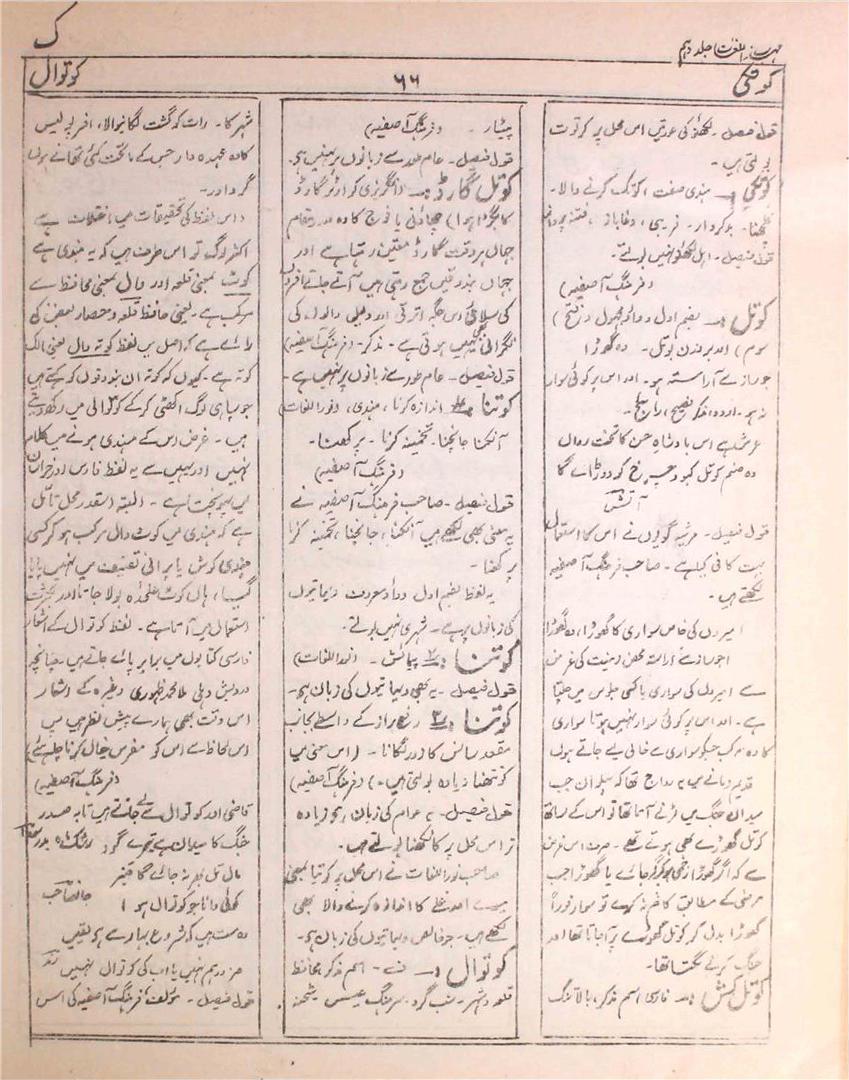 مہذب اللغات جلد دہم
ک
کوتکی
۶۶
کوتوال
قول فیصل۔ لکھنؤ کی عورتیں اس محل پر کرتوت
بولتی ہیں۔
کوتکی :۔ ہندی صفت (کوتک کرنے والا۔
بدکردار۔ فریبی، دغاباز، فتنہ پرداز
قول فیصل۔ اہل لکھنؤ نہیں بولتے۔
(فرہنگ آصفیہ)
کوتل :۔ بضم اول و واؤ مجہول و (فتح
سوم) اور بروزن بوتل۔ وہ گھوڑا
جو ساز سے آراستہ ہو۔ اور اس پر کوئی سوار
نہ ہو۔ اردو، مذکر فصیح، رائج۔
عرش ہے اس بادشاہ حسن کا تخت رواں
وہ صنم کوتل کبود چرخ کو دوڑائے گا
آتش
قول فیصل۔ مرثیہ گویوں نے اس کا استعمال
بہت کافی کیا ہے۔ صاحب فرہنگ آصفیہ
لکھتے ہیں۔
امیروں کی خاص سواری کا گھوڑا، وہ گھوڑا
جو ساز سے آراستہ محض زینت کی غرض
سے امیروں کی سواری یا کسی جلوس میں چلتا
ہے۔ اور اس پر کوئی سوار نہیں ہوتا سواری
کا وہ مرکب جسکو سواری سے خالی لیے جاتے ہوں
قدیم زمانے میں یہ رواج تھا کہ پہلوان جب
میدان جنگ میں لڑنے آتا تھا تو اس کے ساتھ
کوتل گھوڑے بھی ہوتے تھے۔ صرف اس غرض
سے کہ اگر گھوڑا زخمی ہو کر گر جائے یا گھوڑا جب
مرضی کے مطابق کام نہ کرے تو سوار فوراً
گھوڑا بدل کر کوتل گھوڑے پر آجاتا تھا اور
جنگ کرنے لگتا تھا۔
کوتل کش :۔ فارسی اسم مذکر، بالاتنگ
پیشتار۔ (فرہنگ آصفیہ)
قول فیصل۔ عام طور سے زبانوں پر نہیں ہے۔
کوتل گارڈ :۔ (انگریزی کوارٹر گارڈ
کا بگڑا ہوا) چھاؤنی یا فوج کا وہ صدر مقام
جہاں ہر وقت گارڈ متعین رہتا ہے اور
جہاں بندوقیں جمع رہتی ہیں آتے جاتے افسروں
کی سلامی اس جگہ اترتی اور
نگرانی بھی یہیں ہوتی ہے۔ مذکر۔ (فرہنگ آصفیہ)
قول فیصل۔ عام طور سے زبانوں پر نہیں ہے۔
کوتنا :۔ اندازہ کرنا، ہندی، (نور اللغات)
آنکنا جانچنا۔ تخمینہ کرنا۔ پرکھنا۔
(فرہنگ آصفیہ)
قول فیصل۔ صاحب فرہنگ آصفیہ نے
یہ معنی بھی لکھے ہیں آنکنا، جانچنا، تخمینہ کرنا
پرکھنا۔
یہ لفظ بضم اول و واؤ معروف دیہاتیوں
کی زبانوں پر ہے۔ شہری نہیں بولتے۔
کوتنا :۔ ۲ پیمائش۔ (نور اللغات)
قول فیصل۔ یہ بھی دیہاتیوں کی زبان ہے۔
کوتنا :۔ ۳ رفع براز کے واسطے بجانب
مقعد سانس کا زور لگانا۔ (اس معنی میں
کونتھنا زیادہ بولتی ہیں۔) (فرہنگ آصفیہ)
قول فیصل۔ یہ عوام کی زبان ہے زیادہ
تر اس محل پر کانکھنا بولتے ہیں۔
صاحب نور اللغات نے اس محل پر کوتیا بمعنی
اور غلے کا اندازہ کرنے والا بھی
لکھے ہیں۔ جو خالص دیہاتیوں کی زبان ہے۔
کوتوال :۔ ف۔ اسم مذکر محافظ
قلعہ و شہر۔ شب گرد۔ سرہنگ عسس شحنہ
شہر کا۔ رات کو گشت لگانیوالا، افسر پولیس
کا وہ عہدہ دار جس کے ماتحت کئی تھانے ہوں
گرداور۔
(اس لفظ کی تحقیقات میں اختلاف ہے
اکثر لوگ تو اس طرف ہیں کہ یہ ہندی ہے
کوٹ بمعنی قلعہ اور وال بمعنی محافظ سے
مرکب ہے۔ یعنی حافظ قلعہ و حصار بعض کی
رائے ہے کہ اصل میں لفظ کوتہ وال یعنی مالک
کوتہ ہے۔ کیوں کہ کوتہ ان بندوقوں کو کہتے ہیں
جو سپاہی لوگ اکٹھی کرکے کوتوالی میں رکھ دیتے
ہیں۔ غرض اس کے ہندی ہونے میں کلام
نہیں اور یہیں سے یہ لفظ فارس اور خراسان
میں پہونچتا ہے۔ البتہ اسقدر محل تامل
ہے کہ ہندی میں کوٹ وال مرکب ہو کر کسی
ہندی کوش یا پرانی تصنیف میں نہیں پایا
گیا، ہاں کوٹ علیحدہ بولا جاتا اور بکثرت
استعمال میں آتا ہے۔ لفظ کوتوال کے اشعار
فارسی کتابوں میں برابر پائے جاتے ہیں۔ چنانچہ
درویش دہلی ملا محمد ظہوری وغیرہ کے اشعار
اس وقت بھی ہمارے پیش نظر ہیں پس
اس لحاظ سے اس کو مفرس خیال کرنا چاہیے)
(فرہنگ آصفیہ)
قاضی اور کوتوال سے لے جتنے ہیں تا بہ صدر
جنگ کا میدان ہے تیرے گرد
مال تل بھر نہ جائے گا
کوئی دانا جو کوتوال ہو! جانصاحب
وہ مست ہیں کہ شروع بہار سے ہمیں
نہیں یا اب کی کوتوال نہیں
قول فیصل۔ مولف فرہنگ آصفیہ کی اس